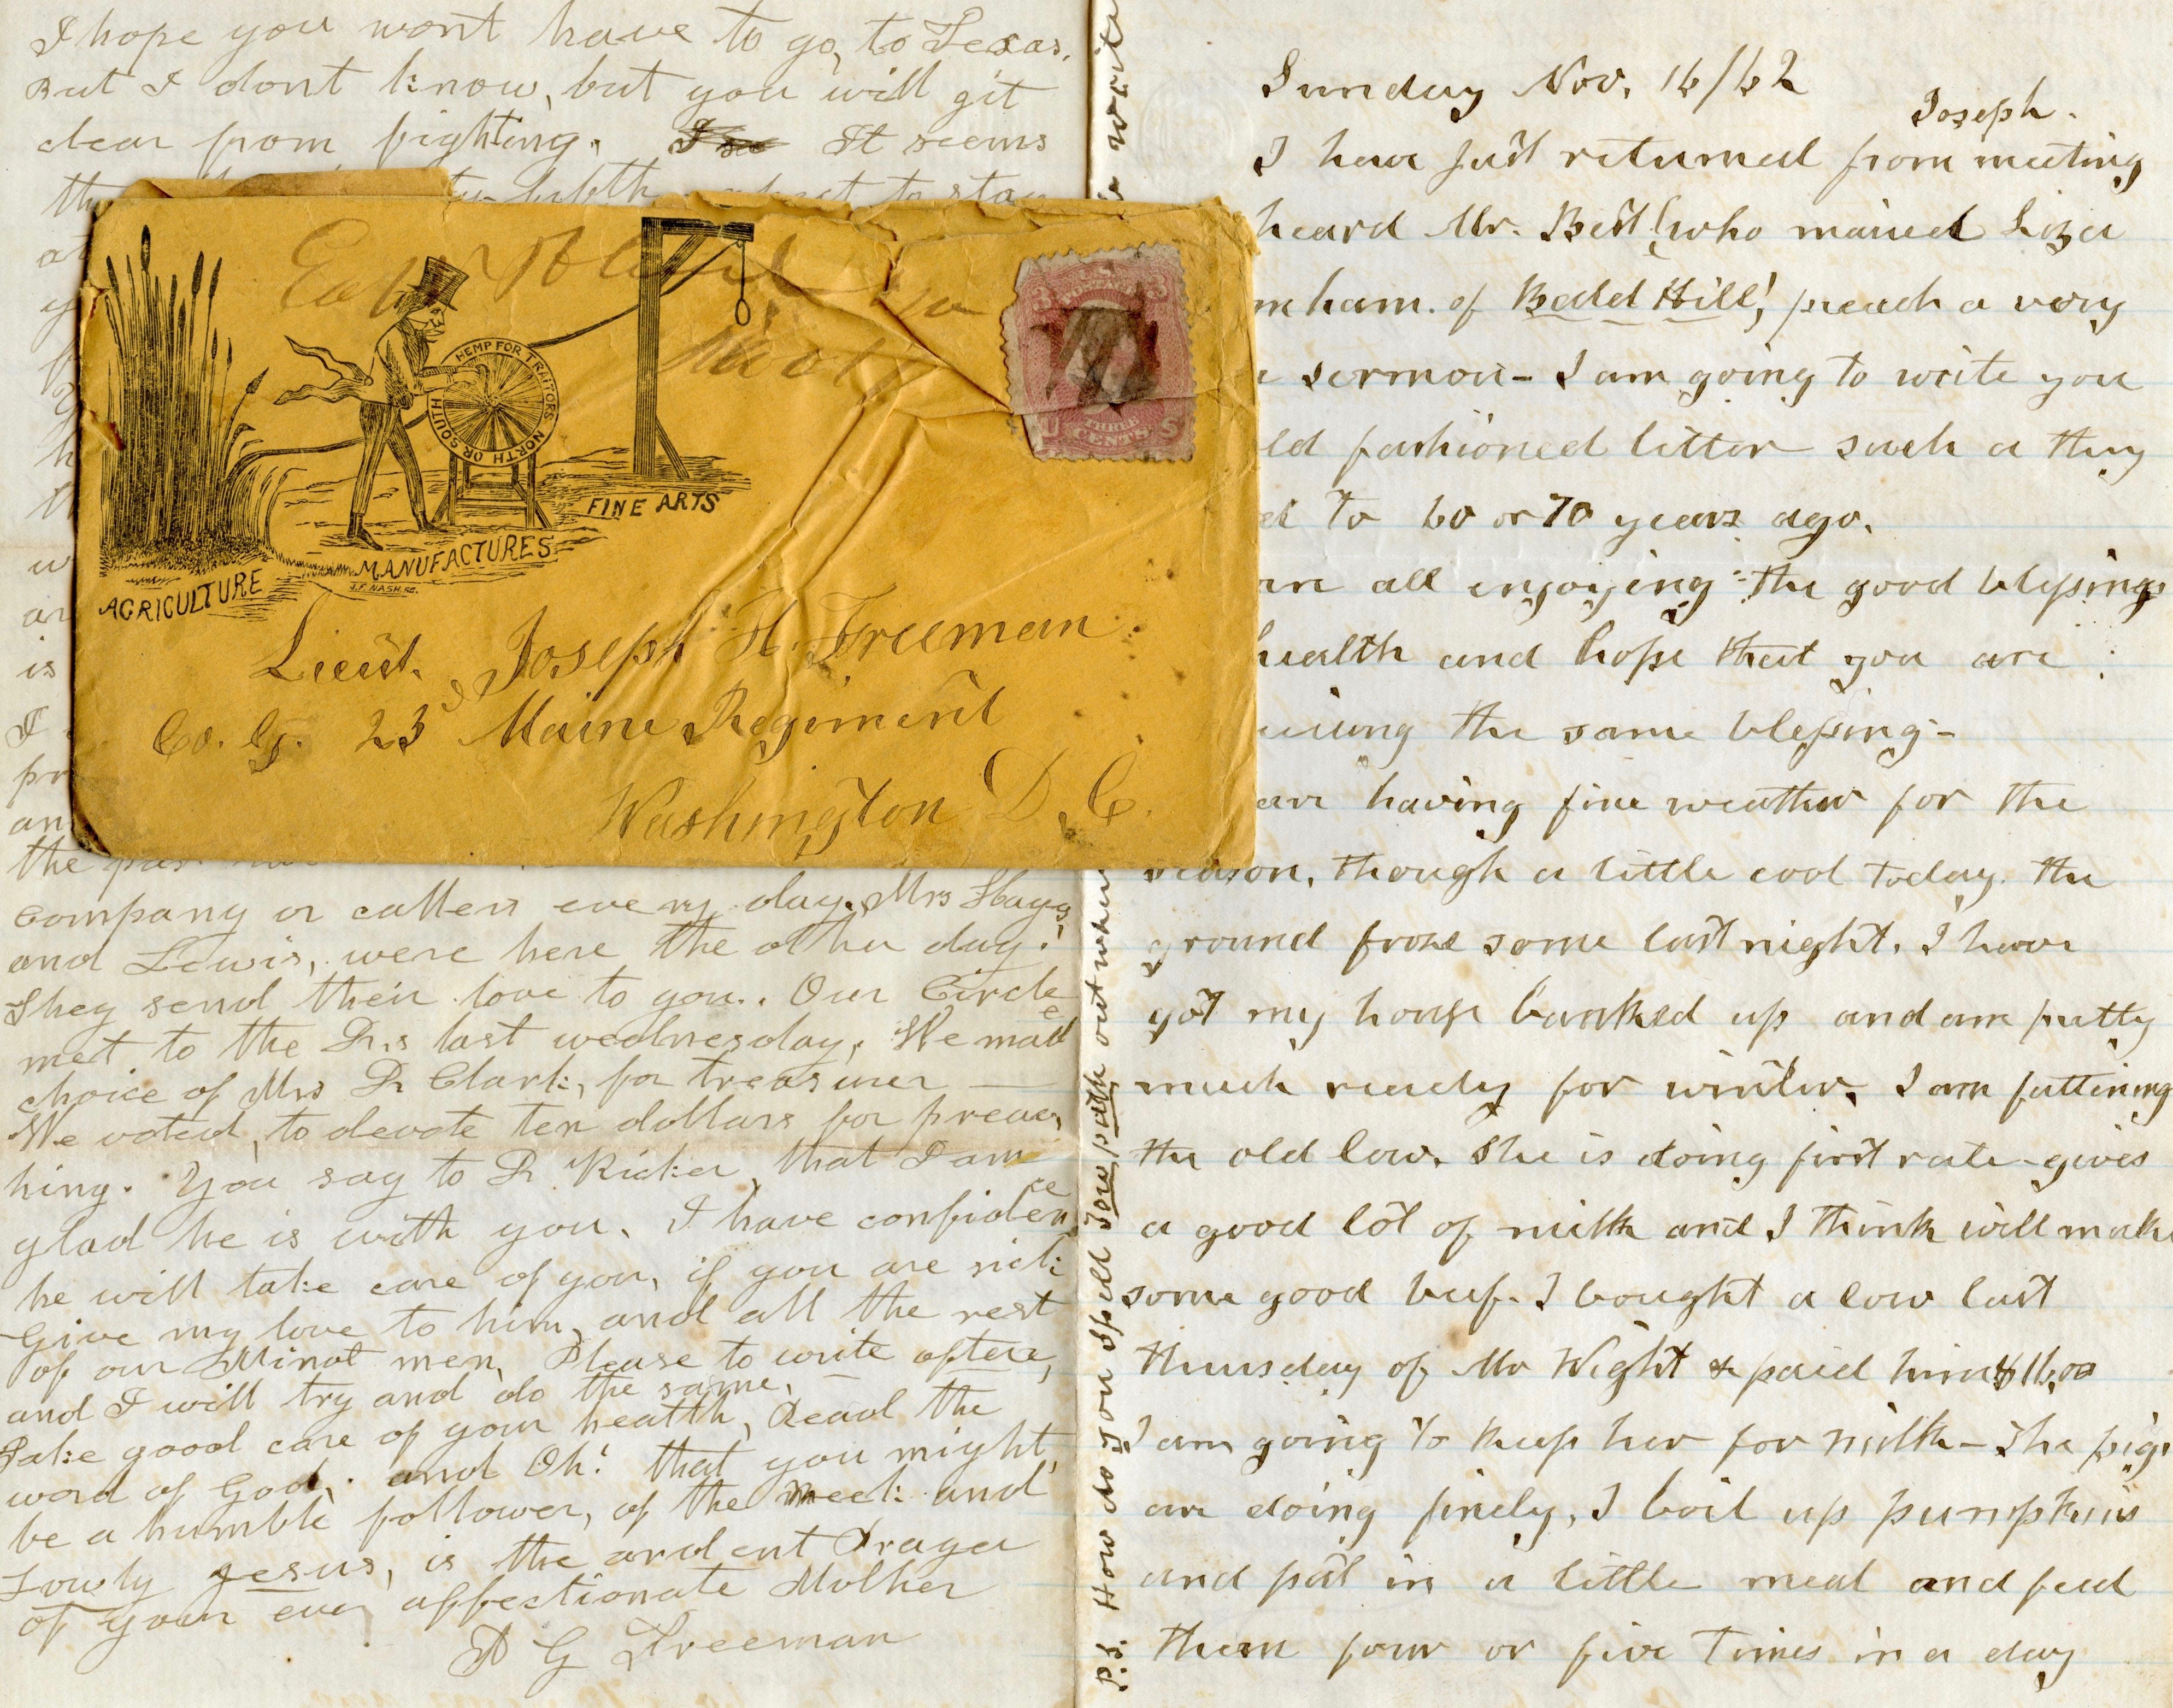 I hope you wont have to go, to Texas,
But I dont know, but you will git
clear from fighting. It seems
to stay
the
Company or callers every day. Mrs Hays
and Lewis, were here the other day!
They send their love to you. Our Circle
met to the Dr,s last wednesday, We made
choice of Mrs Dr Clark, for treasurer —
We voted, to devote ten dollars for preac,
hing. You say to Dr Ricker, that I am
glad he is with you, I have confidence
he will take care of you, if you are sick
Give my love to him, and all the rest
of our Minot men, Please to write often,
and I will try and do the same, —
Take good care of your health, Read the
word of God, and Oh! that you might,
be a humble follower, of the meek and
Lowly Jesus, is the ardent Prayer
of your ever affectionate Mother
A G Freeman
HEMP FOR TRAITORS NORTH OR SOUTH
AGRICULTURE
MANUFACTURES
FINE ARTS
J.F. NASH. SC.
3 POSTAGE 3
U THREE CENTS S
Lieut. Joseph H. Freeman
Co. G. 23d Maine Regiment
Washington D, C.
Sunday Nov. 16/62
Joseph.
I have just returned from meeting
heard Mr. Best (who maried Liza
ham. of Bald Hill, preach a very
sermon - I am going to write you
ld fashioned letter such a they
to 60 or 70 years ago.
all enjoying the good blessings
health and hope that you are
the same blessing -
are having fine weather for the
season, though a little cool today. the
ground froze some last night. I have
got my house banked up and am pretty
much ready for winter. I am fattening
the old Cow. She is doing first rate - gives
a good lot of milk and I think will make
some good beef. I bought a Cow last
thursday of Mr Wight & paid him $16,00
I am going to keep her for milk - The pigs
are doing finely, I boil up pumpkins
and put in a little meal and feed
them four or five times in a day
P.S. How do you spell Tow path out where
write